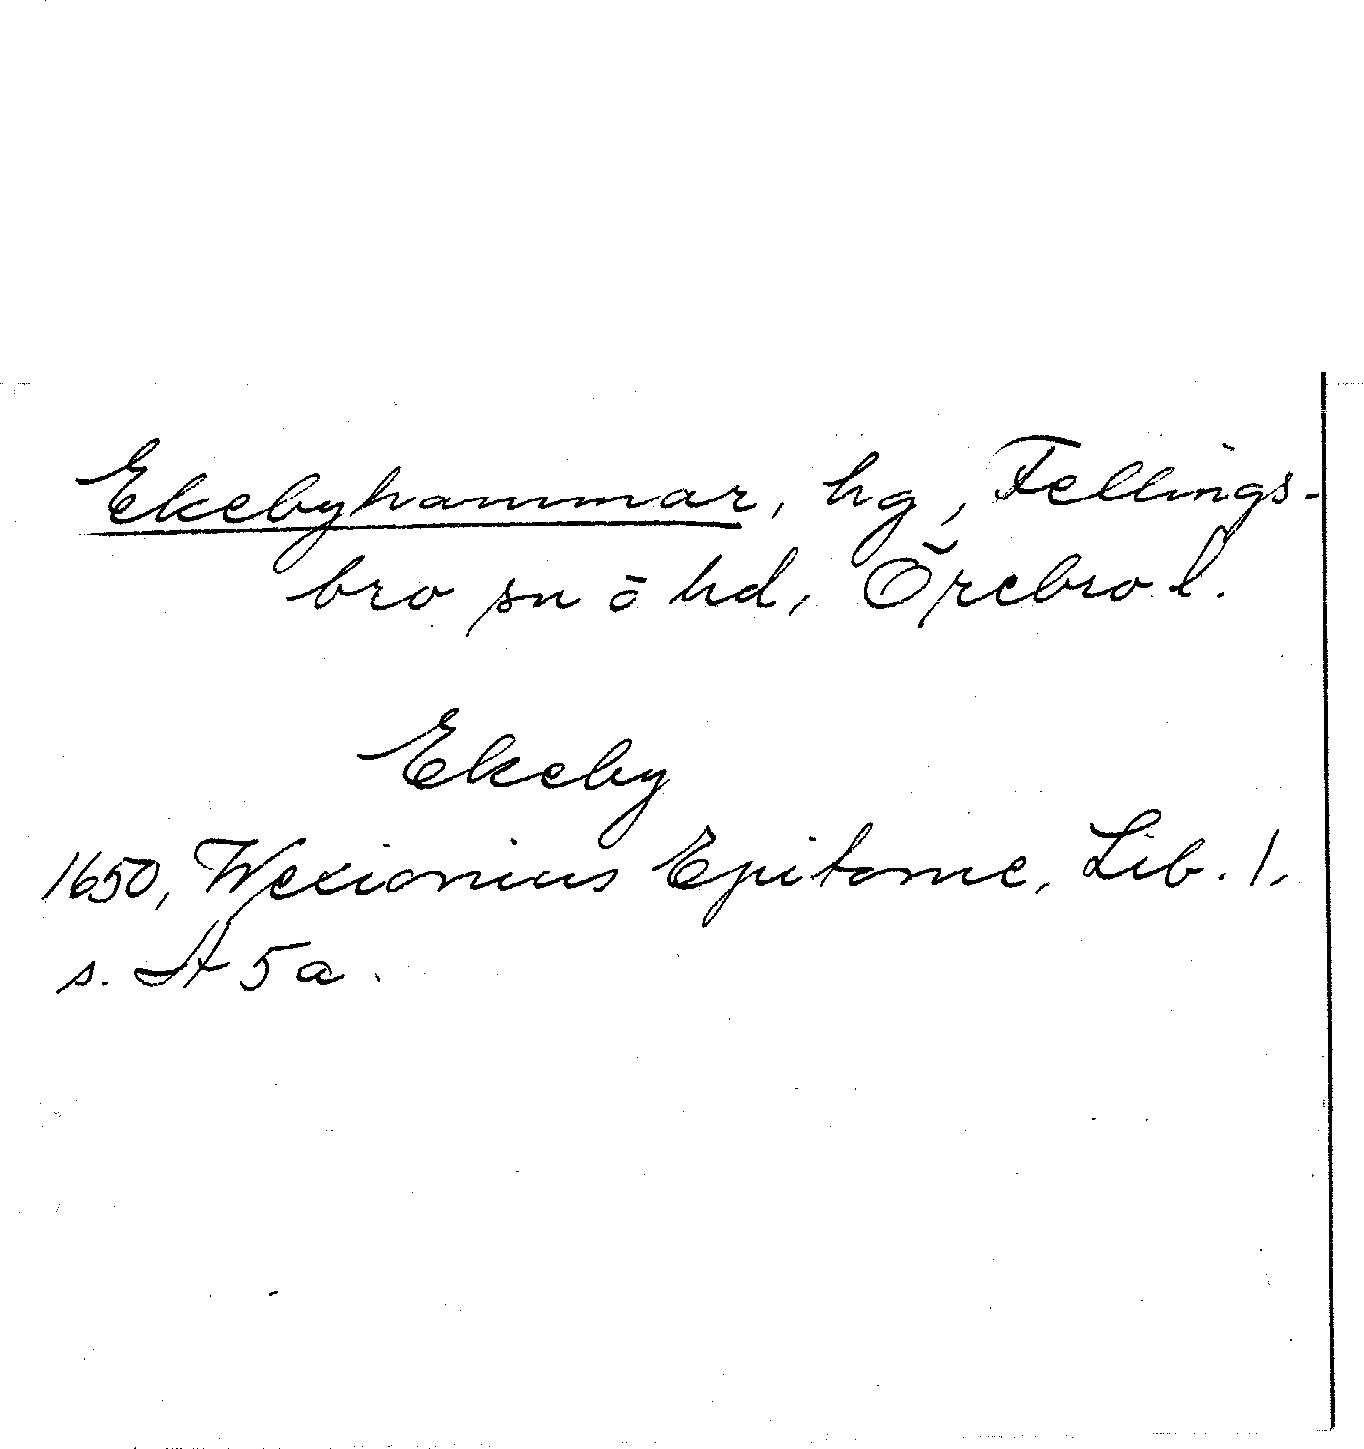 Ekebyhammar, hg, Fellings-
bro sn o hd, Örebro l.
Ekeby
1650, Wexionius Epitome, Lib. 1,
s. A 5a.